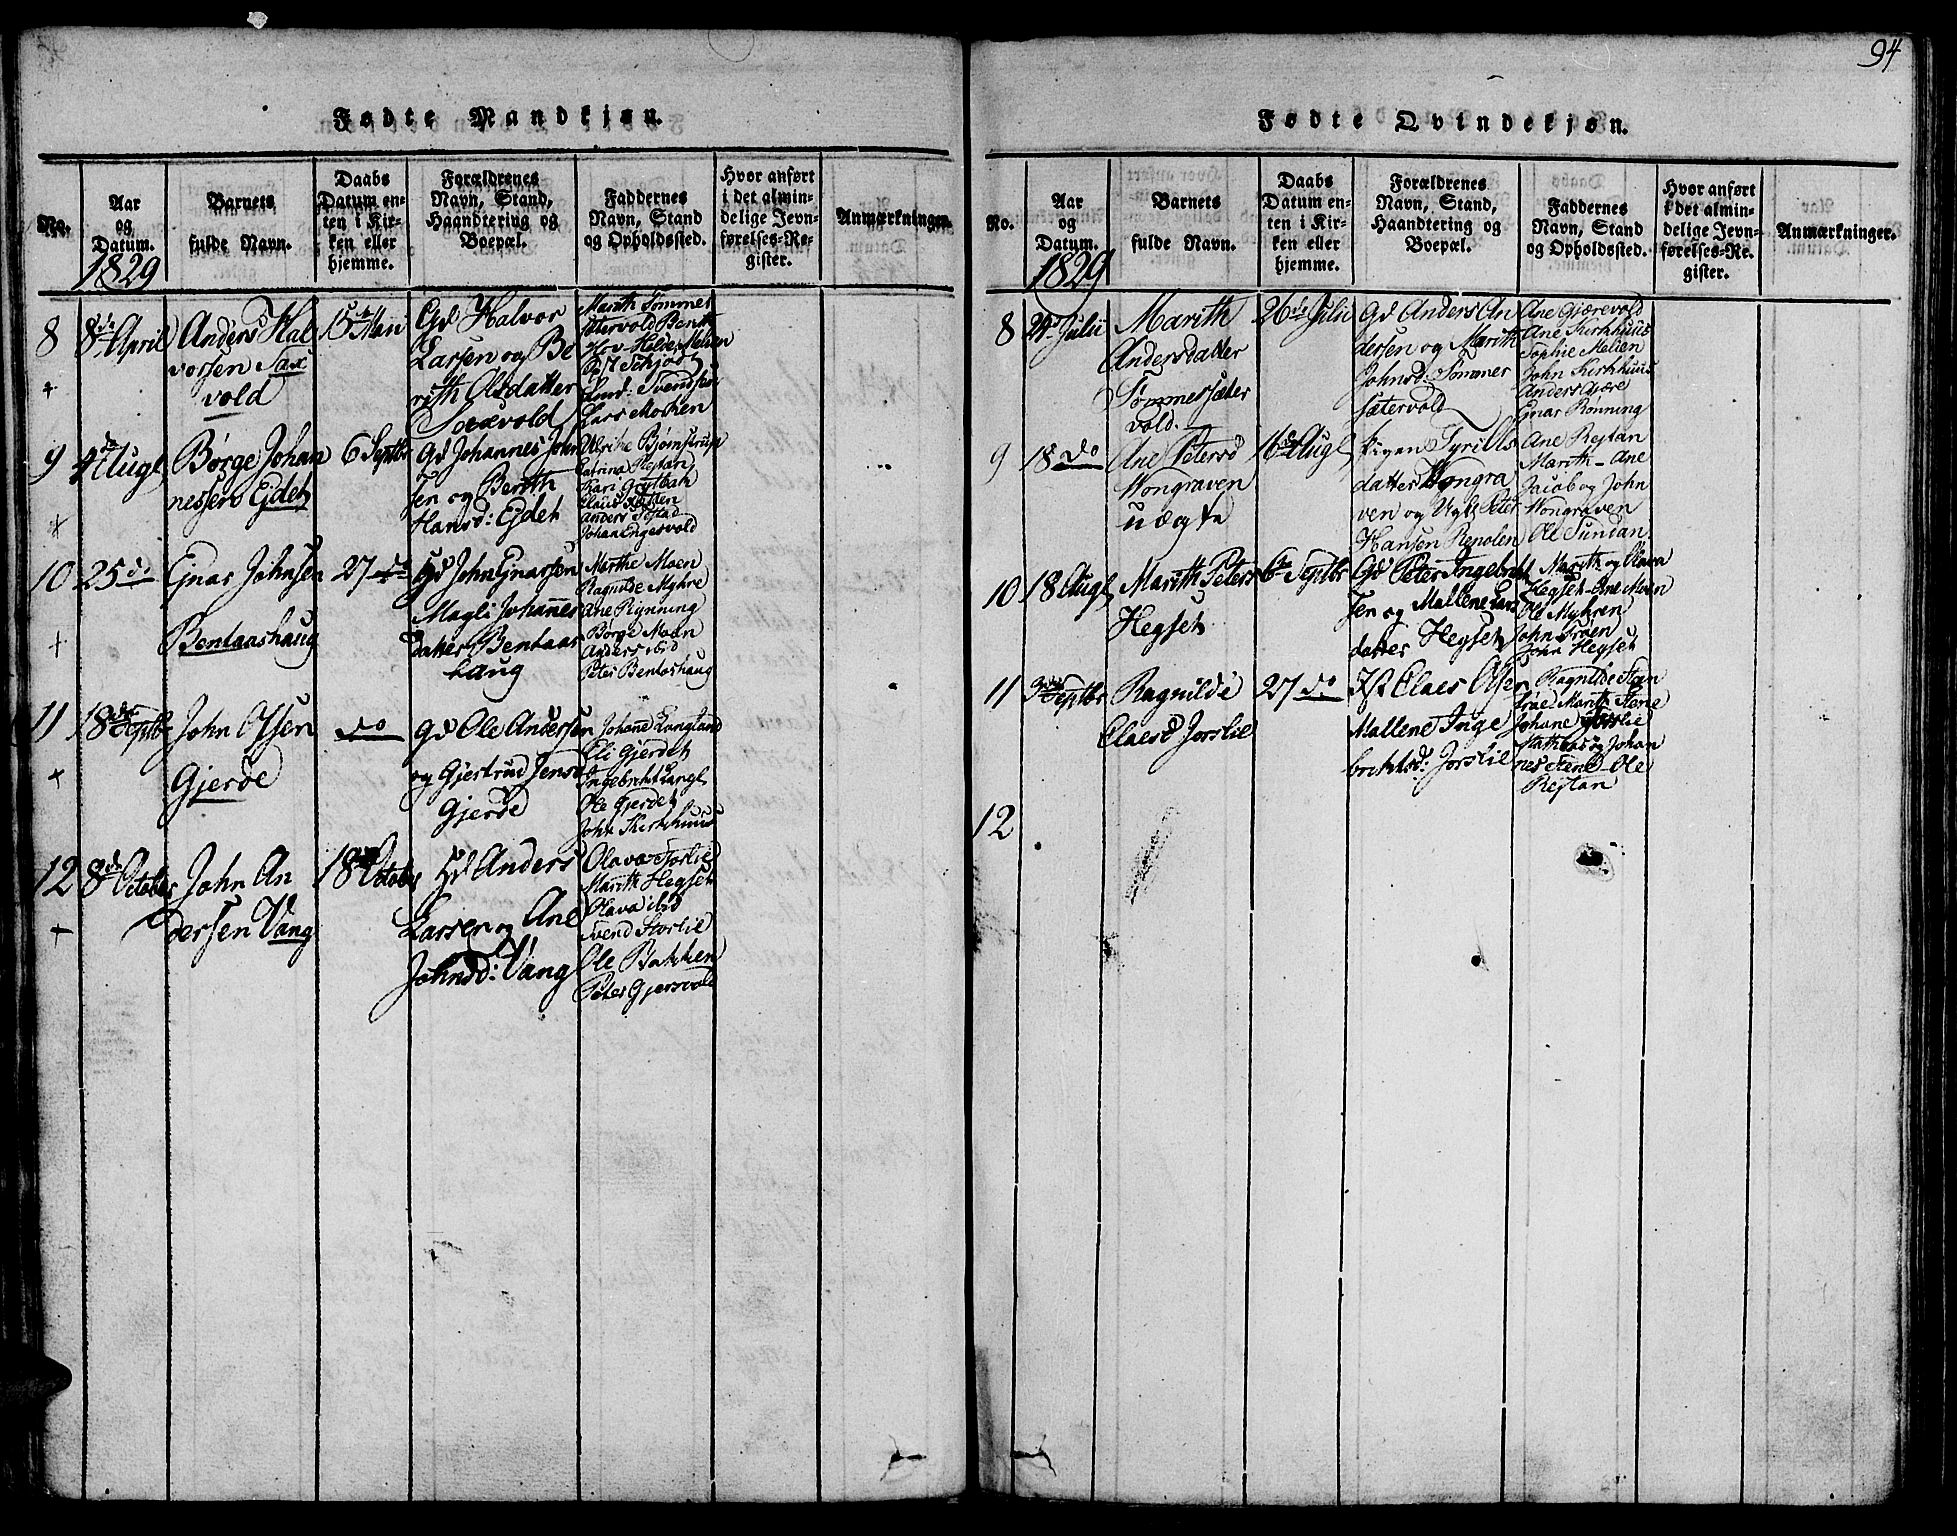 94
Fødte Mandkjøn.
No.
Aar og Datum.
1829
Barnets fulde Navn.
Daabs Datum enten i Kirken eller hjemme.
Forældrenes Navn, Stand, Haandtering og Boepæl.
Faddernes Navn, Stand og Opholdssted.
Hvor anført i det almindelige Jevnførelses-Register.
Anmærkninger.
8
8de April
Anders Hal
vorsen Sax
vold
15de Mai
Gd Halvor
Larsen og Be
rith Olsdatter
Saxvold
Marith Sommer
sætervold Berith
Lars Moken
9
4de Augt
Børge Johan
nessen Ejdet
6 Septbr
Gd Johannes John
sen og Berith
Hansd: Ejdet
Ulriche Bjørnstrup
Catrina Rejtan
Kari Grytbak
Claus Ræiten
Anders Sæstad
Johan Engesvold
10
25 do
Ejnar Johnsen
Bentaashaug
27 do
Gd John Ejnarsen
Magli Johannes
datter Bentaas
haug
Marthe Moen
Ragnilde Myhre
Ane Rynning
Børge Moan
Anders ibid
Peter Bentashaug
11
18de Septbr
John Olsen
Gjerde
do
Gd Ole Andersen
og Gjertrud Jensd
Gjerde
Johane Langland
Eli Gjerdet
Ingebricht Langl
Ole Gjerdet
John Kirkhuus
12
8de Octobr
John An
dersen Vang
18 Octobr
Gd Anders
Larsen og Ane
Johnsd: Vang
Olava Storlie
Marith Hegset
Olava ibid
Svend Storlie
Ole Bakken
Peter Gjersvold
Fødte Qvindekjøn.
No.
Aar og Datum.
1829
Barnets fulde Navn.
Daabs Datum enten i Kirken eller hjemme.
Forældrenes Navn, Stand, Haandtering og Boepæl.
Faddernes Navn, Stand og Opholdssted.
Hvor anført i det almindelige Jevnførelses-Register.
Anmærkninger.
8
24 Julii
Marith
Andersdatter
Sommersæter
vold.
26de Julii
Gd Anders An
dersen og Marith
Johnsd: Sommer
sætervold
Ane Gjærevold
Ane Kirkhuus
Sophie Melien
John Kirkhuus
Anders Gjære
Ejnar Rønning
9
18 do
Ane Petersd
Wongraven
uægte
16de Augt
Pigen Tyri Ols
datter Wongra
ven og Ugk Peter
Hansen Repolen
Ane Rejtan
Marith - Ane
Jacob og John
Wongraven
Ole Sundan
10
18 Augt
Marith Peters
Hegset
6te Septbr
Gd Peter Ingebrict
sen og Mallene Lars
datter Hegset
Marith og Olava
Hegset - Ane Moan
Ole Myhren
John Trøen
John Hegset
11
3de Septbr
Ragnilde
Claesd Jorslie
27 do
Claes Olsen
Mallene Inge
brichtsd: Jorslie
Ragnilde Sten
trøe Marith Stene
Johane Jorslie
Mathias og Johan
nes Stene - Ole
Rejtan
12